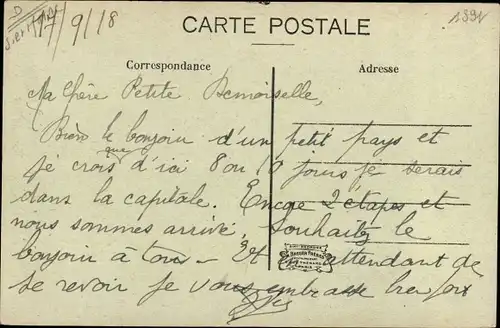 CARTE POSTALE
17/9/18
Correspondance
Adresse
Ma Chère Petite Demoiselle,
Bien le bonjour d'un petit pays et
je crois que d'ici 8 ou 10 jours je serais
dans la capitale. Encore 2 étapes et
nous sommes arrivé. Souhaitez le
bonjour à tous - Et en attendant de
se revoir je vous embrasse bien fort